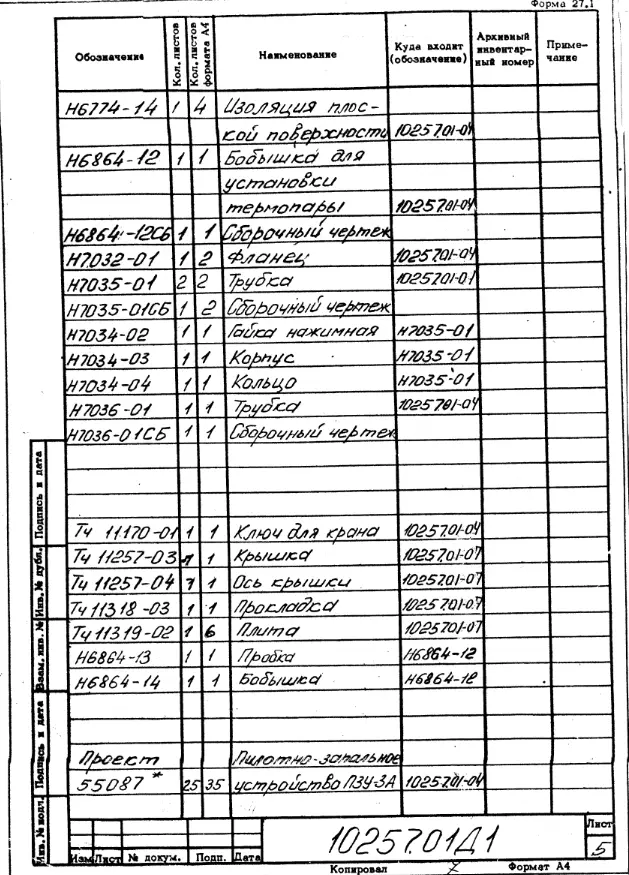 Форма 27.1
Обозначение Кол. листов Кол. листов формата А4 Наименование Куда входит (обозначение) Архивный инвентарный номер Примечание
Н6774-14 1 4 Изоляция плос-
кой поверхности 1025701-04
Н6864-12 1 1 Бобышка для
установки
термопары 1025701-04
Н6864-12СБ 1 1 Сборочный чертеж
Н7032-01 1 2 Фланец 1025701-04
Н7035-01 2 2 Трубка 1025701-01
Н7035-01СБ 1 2 Сборочный чертеж
Н7034-02 1 1 Гайка нажимная Н7035-01
Н7034-03 1 1 Корпус Н7035-01
Н7034-04 1 1 Кольцо Н7035-01
Н7036-01 1 1 Трубка 1025701-04
Н7036-01СБ 1 1 Сборочный чертеж
Тч 11170-01 1 1 Ключ для крана 1025701-04
Тч 11257-03 1 1 Крышка 1025701-07
Тч 11257-04 1 1 Ось крышки 1025701-07
Тч 11318-03 1 1 Прокладка 1025701-07
Тч 11319-02 1 6 Плита 1025701-07
Н6864-13 1 1 Пробка Н6864-12
Н6864-14 1 1 Бобышка Н6864-12
Проект Пилотно-запальное
55087* 25 35 устройство ПЗУ-3А 1025701-04
Подпись и дата
Инв. № дубл.
Взам. инв. №
Подпись и дата
Инв. № подл.
Изм Лист № докум. Подп. Дата
1025701Д1
Лист
5
Копировал Формат А4